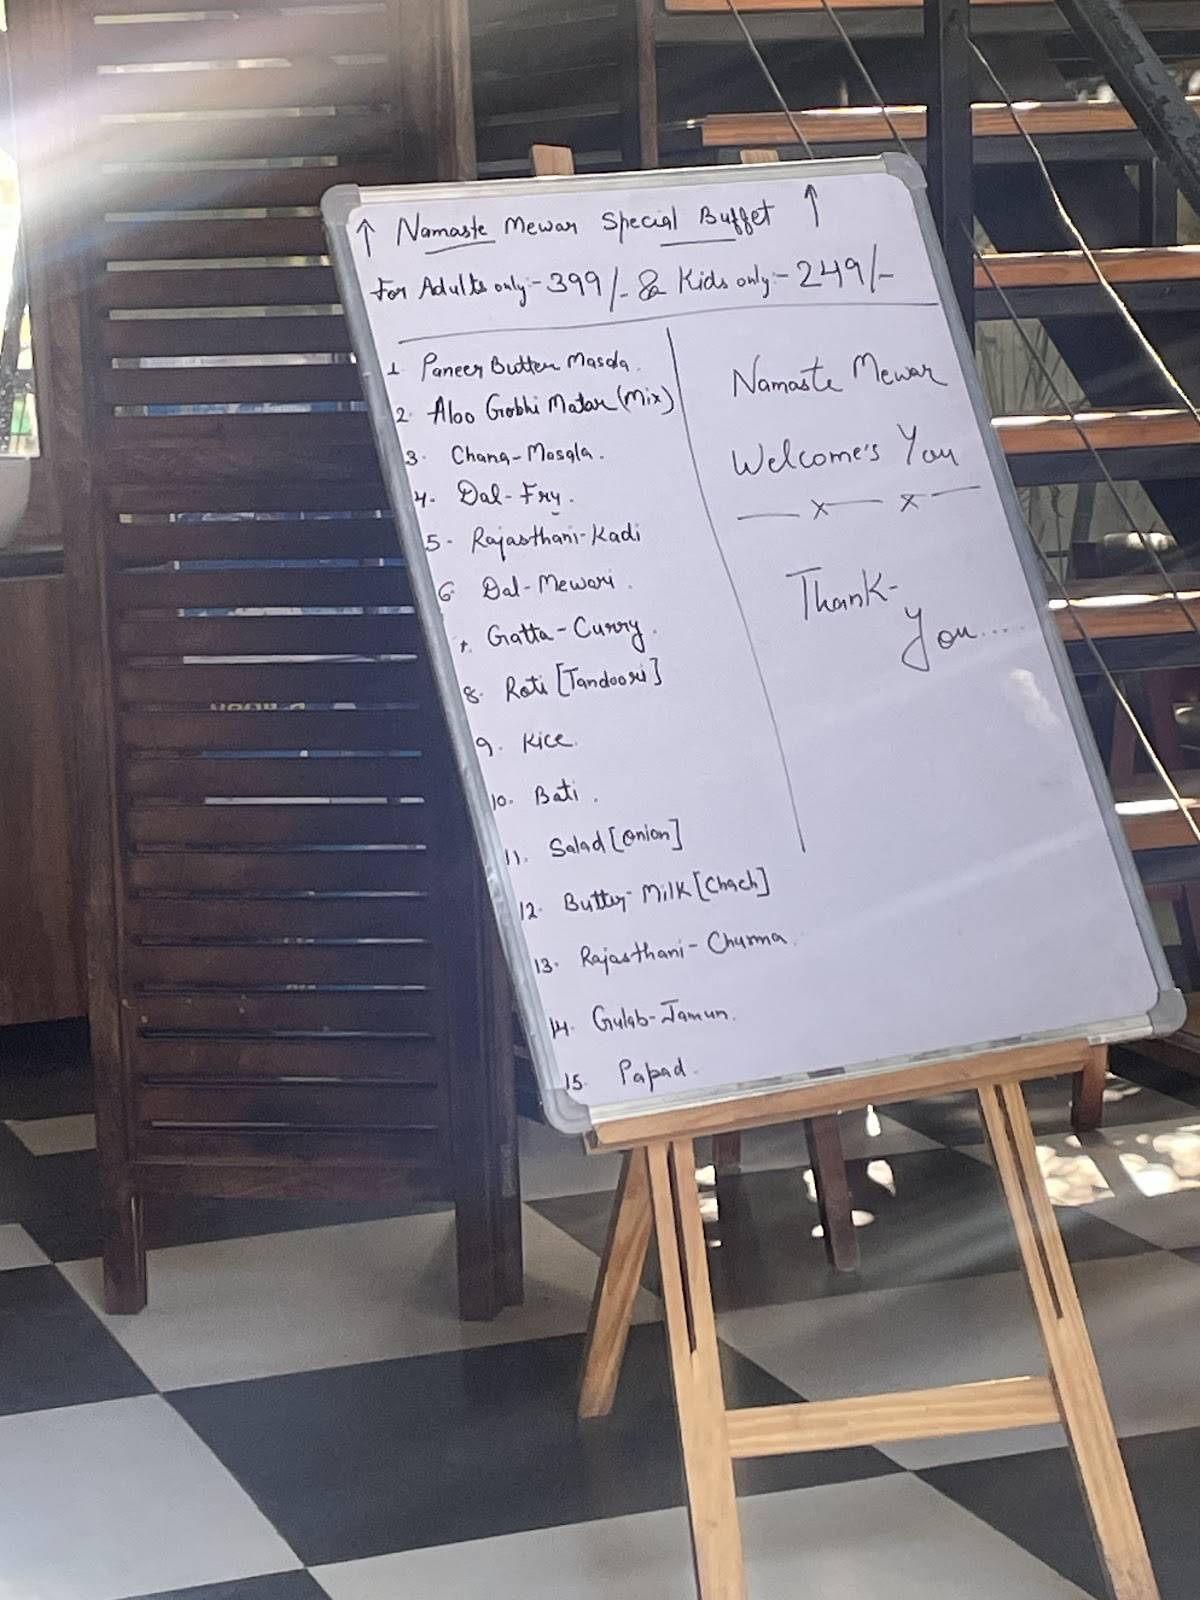 ↑ Namaste Mewar Special Buffet ↑
For Adults only:- 399/- & Kids only:- 249/-
1. Paneer Butter Masala.
2. Aloo Gobhi Matar (Mix)
3. Chana-Masala.
4. Dal-Fry.
5- Rajasthani-Kadi
6. Dal-Mewari.
7. Gatta-Curry.
8. Roti [Tandoori]
9. Rice.
10. Bati.
11. Salad [Onion]
12. Butter-Milk [Chach]
13. Rajasthani-Churma.
14. Gulab-Jamun.
15. Papad.
Namaste Mewar
Welcome's You
— x — x —
Thank-
You....